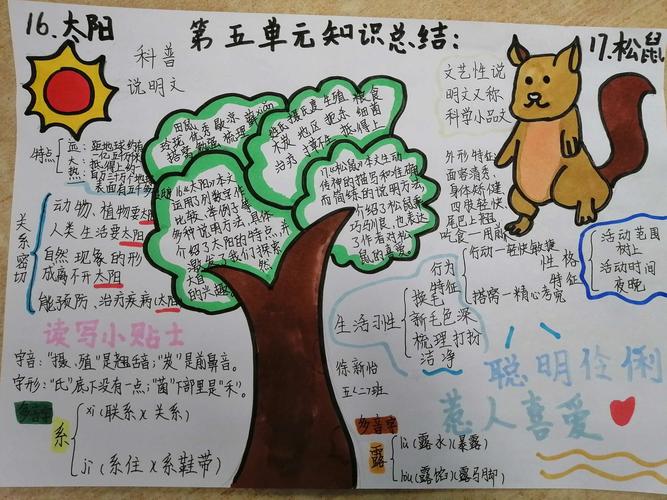 第五单元知识总结:
16.太阳
科普
说明文
特点
远:
大:
热:
表面五千多
关系密切
动物、植物要太阳
人类生活要太阳
自然现象的形
成离不开太阳
能预防、治疗疾病(太阳
读写小贴士
字音:“摄、殖”是翘舌音;“炭”是前鼻音。
字形:“氏”底下没有一点;“菌”下部里是“禾”。
多音字
系
xì(联系)(关系)
jì(系住)(系鞋带)
生殖 粮食
木炭 地区 杀 细菌
治疗
16《太阳》本文
运用了列数字作
比较、举例子等
多种说明方法,具体
介绍了太阳的特点,并
激发了我们探索
大自然
的兴趣
17《松鼠》本文生动
传神的描写和准确
而简练的说明方法
介绍了松鼠乖
巧驯良,也表达
了作者对松
鼠的喜爱
17.松鼠
文艺性说
明文又称
科学小品文
外形特征
面容清秀
身体矫健
四肢轻快
尾巴上翘
吃食一用爪
行动一轻快敏捷
性格
特征
搭窝一精心考究
活动范围
树上
活动时间
夜晚
生活习性
行为
特征
换毛
新毛色深
梳理打扮
洁净
徐新怡
五(二)班
聪明伶俐
惹人喜爱
多音字
露
lù(露水)(暴露)
lòu(露馅)(露马脚)